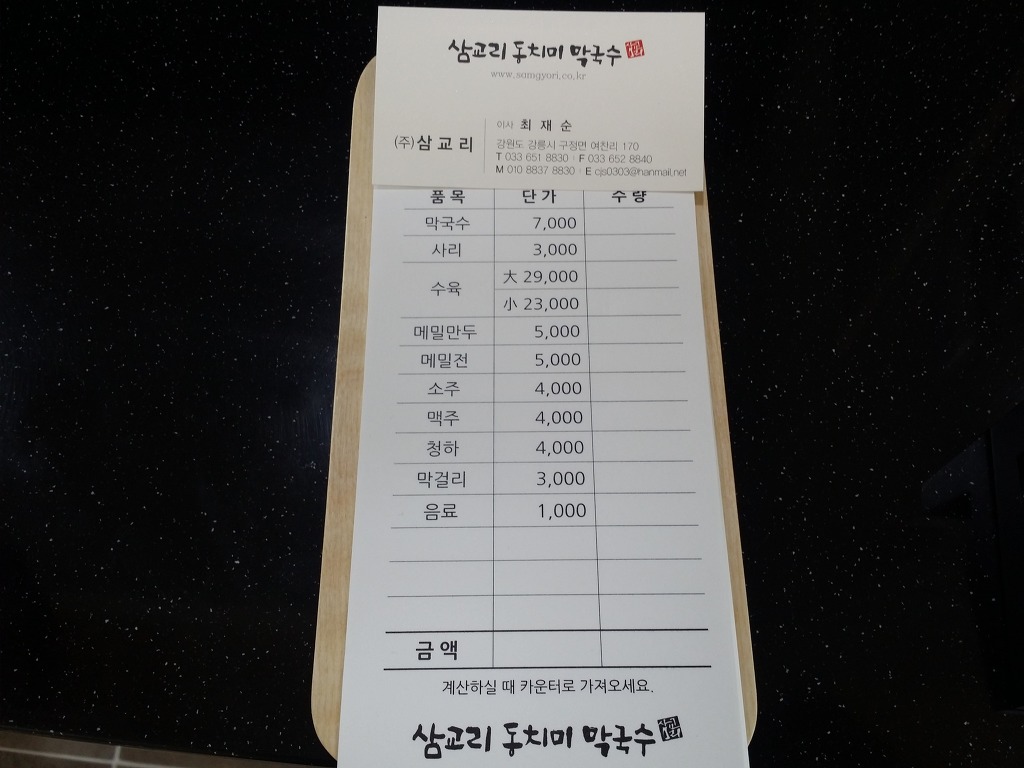 삼교리 동치미 막국수
www.somgyori.co.kr
(주)삼교리
이사 최재순
강원도 강릉시 구정면 여찬리 170
T 033 651 8830 F 033 652 8840
M 010 8837 8830 E cjs0303@hanmail.net
품목 단가 수량
막국수 7,000
사리 3,000
수육 大 29,000
小 23,000
메밀만두 5,000
메밀전 5,000
소주 4,000
맥주 4,000
청하 4,000
막걸리 3,000
음료 1,000
금액
계산하실 때 카운터로 가져오세요.
삼교리 동치미 막국수